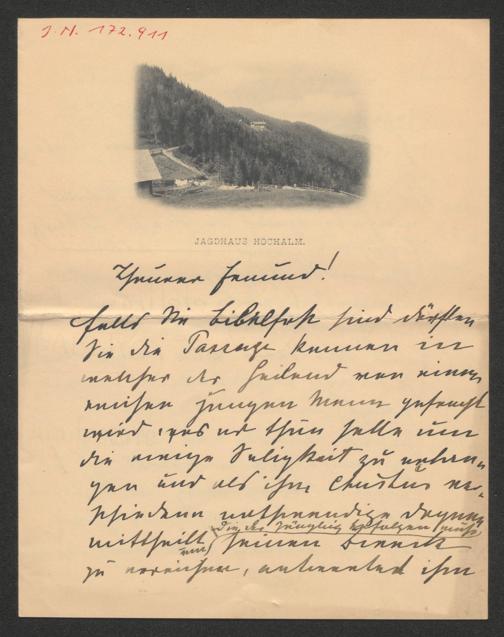 J.N. 172.911
JAGDHAUS HOCHALM.
Theurer Freund!
Falls Sie bibelfest sind dürften
Sie die Passage kennen in
welcher der Heiland von einem
reichen jungen Mann gefragt
wird, was er thun solle um
die ewige Seligkeit zu erlan-
gen und als ihm Christus ver-
schiedene nothwendige Dogmen
mittheilt, die der Jüngling befolgen müsse
um seinen Zweck
zu erreichen, antwortet ihm